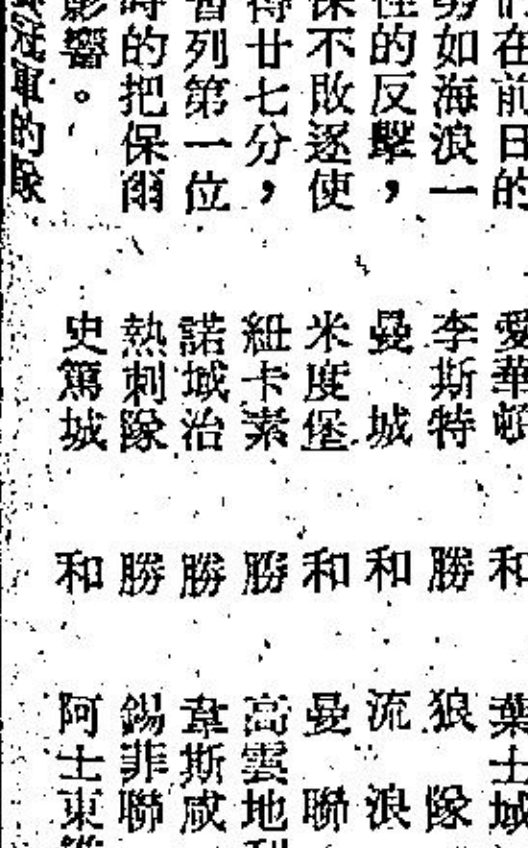 在前日的
如海浪一
的反擊，
不敗逐使
得廿七分，
暫列第一位
時的把保爾
影響。
冠軍的隊
愛華頓 和 葉士城
李斯特 勝 狼隊
曼城 和 流浪
米度堡 和 曼聯
紐卡素 勝 高雲地利
諾域治 勝 韋斯咸
熱刺隊 勝 錫菲聯
史篤城 和 阿士東維